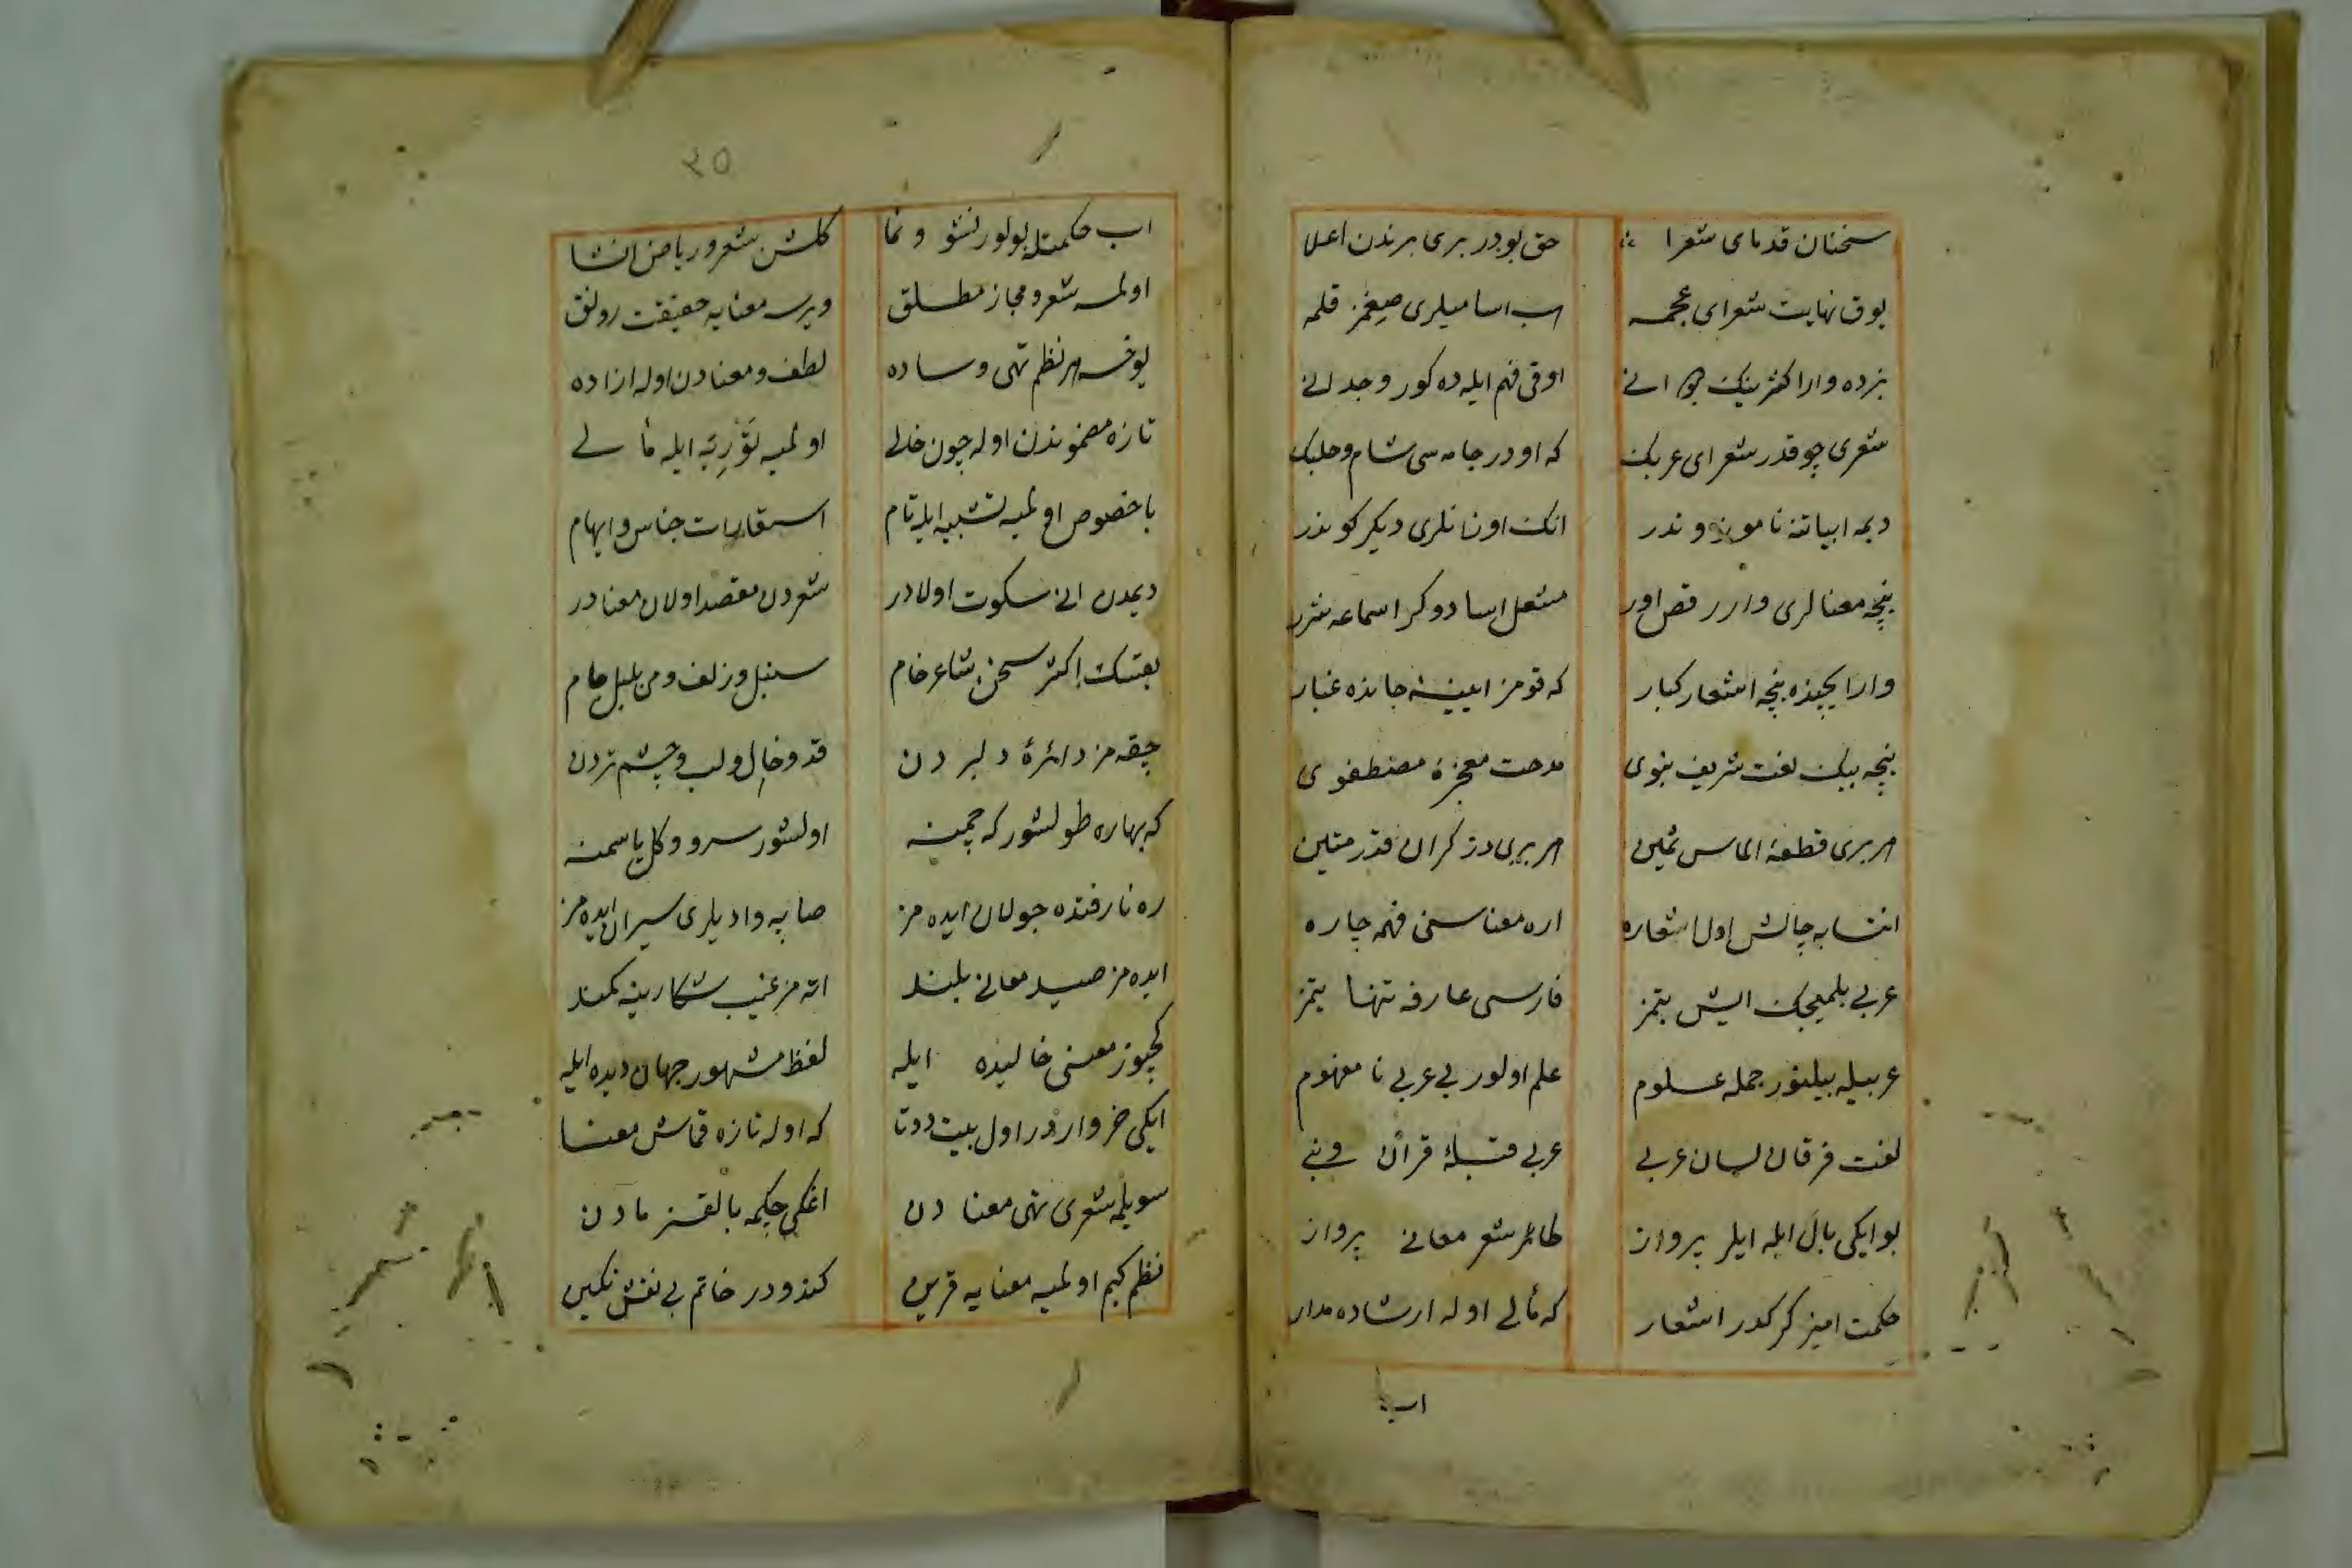 سخنان قدمای شعرا حق بودر بری برندن اعلا
یوق نهایت شعرای عجمه اسامیلری صیغمز قلمه
بزده وار اکثرینک دیوانی اوقی فهم ایله ده کور وجدانی
شعری چوقدر شعرای عربک که اودر جامه سی شام و حلبک
دیمه ابیاتنه ناموزوندر انک اوزانلری دیکر کوندر
نیچه معنالری وار رقص اور مشعل اسا دوکر اسماعه شرر
وار ایچنده نیچه اشعار کبار که قومز ایینهٔ جانده غبار
نیچه بیک نعت شریف نبوی مدحت معجزهٔ مصطفوی
هر بری قطعهٔ الماس ثمین هر بری در کران قدر متین
انتسابه چالش اول اشعاره اره معناسنی فهمه چاره
عربی بلمیجک ایش بتمز فارسی عارفه تنها یتمز
عربیله بیلنور جمله علوم علم اولور بی عربی نامفهوم
لغت فرقان لسان عربی عربی قبلهٔ قران و نبی
بو ایکی بال ایله ایلر پرواز طائر شعر معانی پرواز
حکمت امیز کرکدر اشعار که مألی اوله ارشاده مدار
اب
٢٥
اب حکمتله بولور نشو و نما کلشن شعر و ریاض انشا
اولمسه شعر و مجاز مطلق ویرسه معنایه حقیقت رونق
یوخسه هر نظم تهی و ساده لطف و معنادن اوله ازاده
تازه مضموندن اوله چون خالی اولمیه توریه ایله مألی
باخصوص اولمیه تشبیه ایله تام استعارات جناس و ایهام
دیمدن انی سکوت اولادر شعردن مقصد اولان معنادر
بعضنک اکثر سخن شاعر خام سنبل و زلف و می بلبل جام
چیقه مز دائرهٔ دلبردن قد و خال و لب و چشم تردن
که بهاره طولشور که چمنه اولشور سرو و کل یاسمنه
ره نارفتده جولان ایده مز صاپه وادیلری سیران ایده مز
ایده مز صید معانی بلند اته مز غیب شکارینه کمند
کچنور معنی خالیده ایله لفظ مشهور جهان دیده ایله
ایکی خرواردر اول بیت دوتا که اوله تازه قماش معنا
سویلمه شعری تهی معنادن اغکی چکمه بالقسز مادن
نظم کیم اولمیه معنایه قرین کندودر خاتم بی نقش نکین